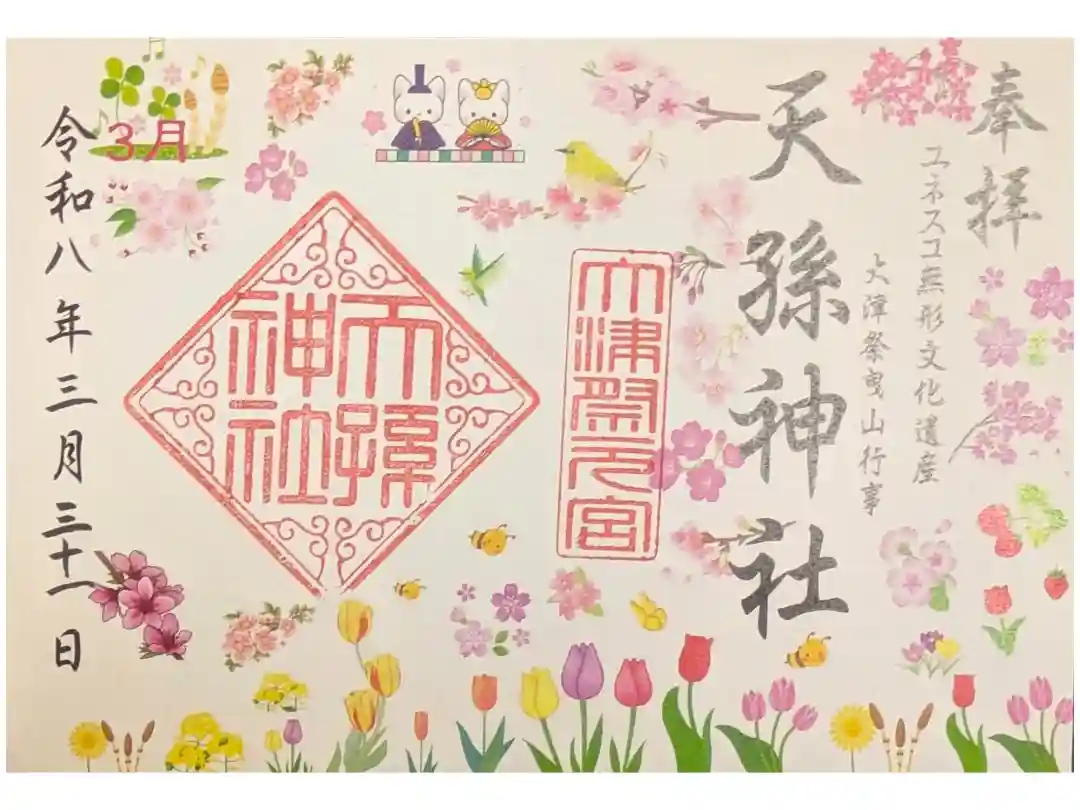 奉拝
ユネスコ無形文化遺産
大津祭曳山行事
天孫神社
大津祭元宮
天孫神社
3月
令和八年三月三十一日